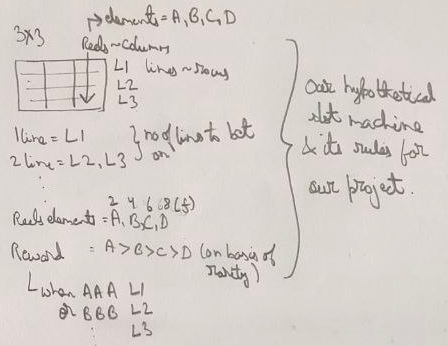 → elements = A, B, C, D
3x3
Reels ~ columns
L1 lines ~ rows
L2
L3
1 line = L1
2 line = L2, L3
} no of lines to bet on
⋮
2 4 6 8 (f)
Reels elements = A, B, C, D
Reward = A > B > C > D (on basis of rarity)
when AAA L1
or BBB L2
⋮ L3
Our hypothetical
slot machine
& its rules for
our project.